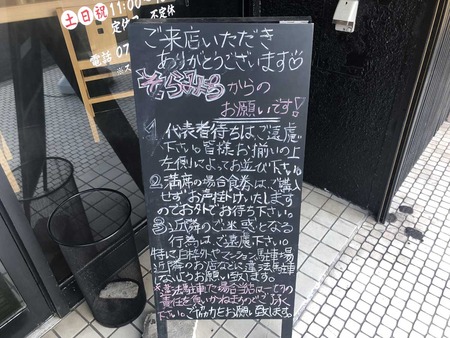 土日祝 11:00
定休 不定休
電話 07
ご来店いただき
ありがとうございます♡
からの
お願いです!
1. 代表者待ちは、ご遠慮
下さい。皆様お揃いの上
左側によってお並び下さい。
②満席の場合食券は、ご購入
せず お声掛けいたします
のでお外でお待ち下さい。
③近隣のご迷惑となる
行為は、ご遠慮下さい。
特に白枠外やマンション駐車場
近隣のお店などに違法駐車
ないようお願い致します。
※違法駐車た場合当店は一切の
責任を負いかねますのでご了承
下さい。ご協力をお願い致します。